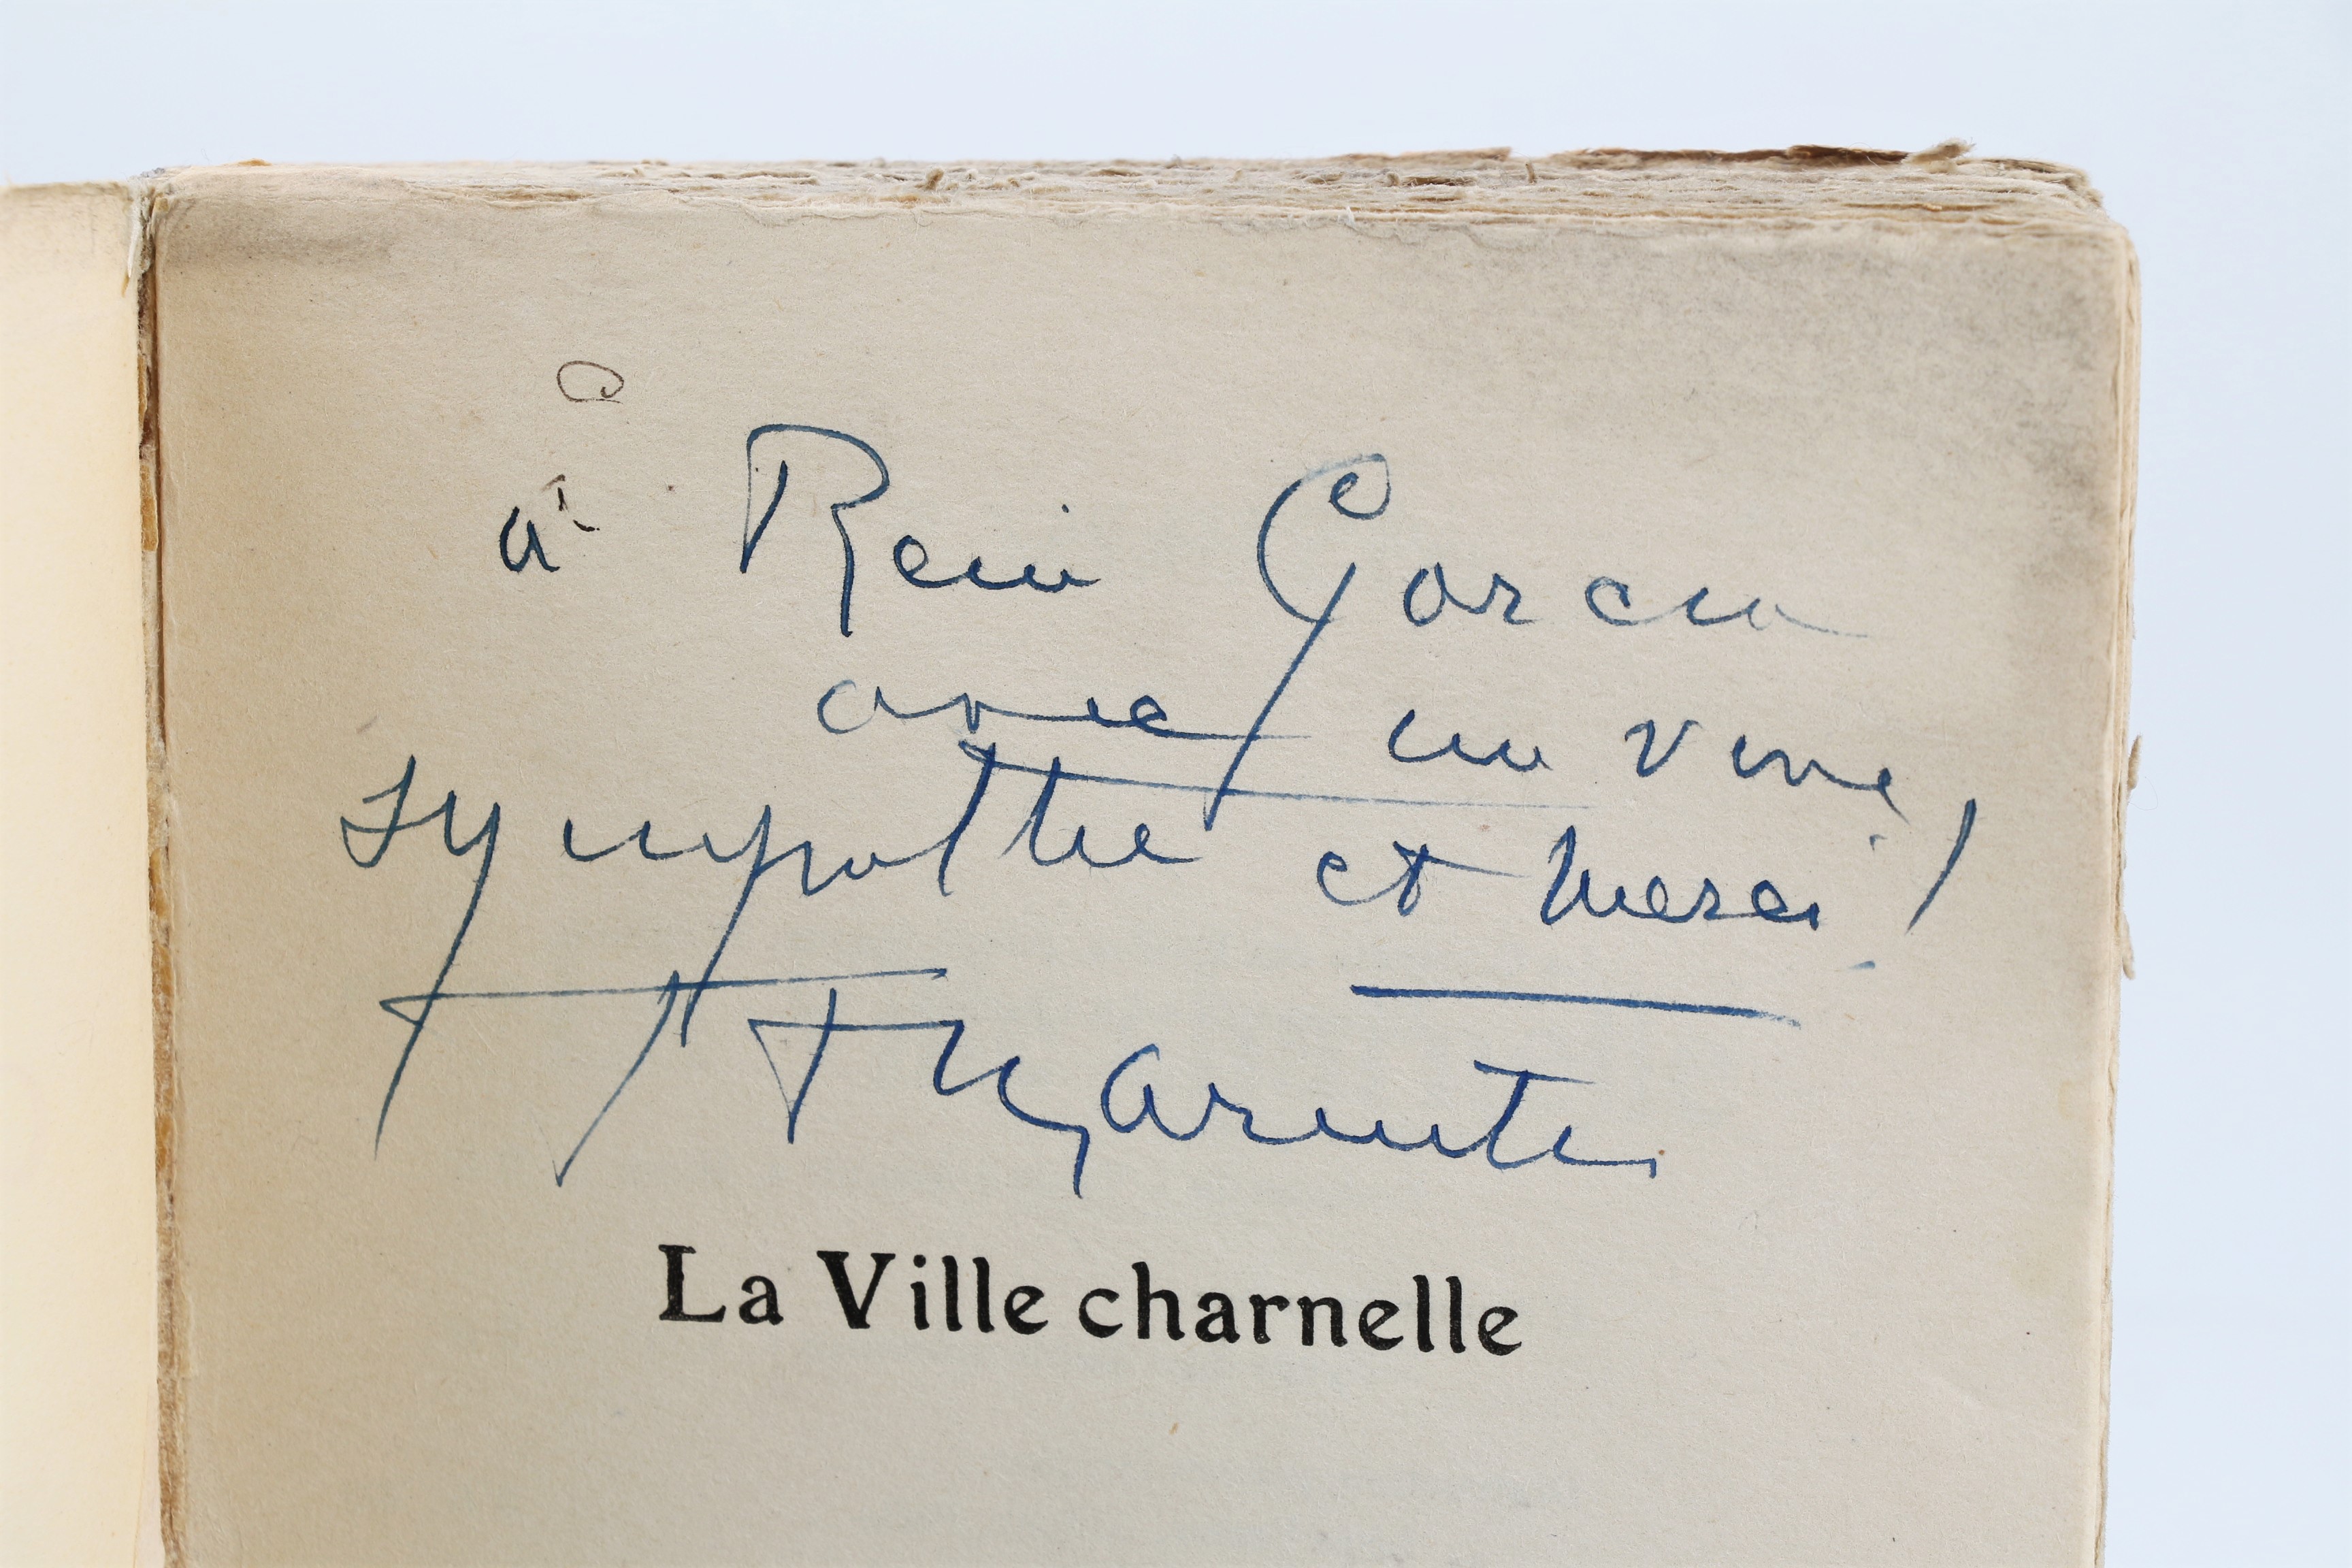 à René Garcia
avec une vive
sympathie et merci!
F T Marinetti
La Ville charnelle